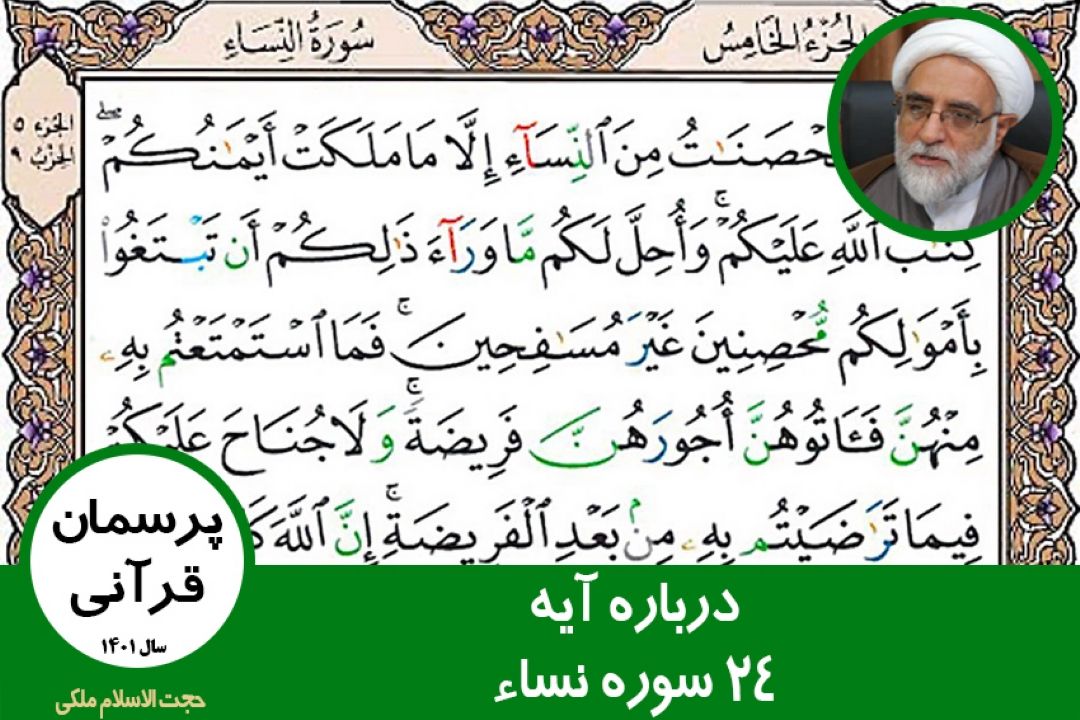 الجُزءُ الخَامِسُ
سُورَةُ النِّسَاءِ
الجزء ٥
الحزب ٩
مِنَ ٱلنِّسَآءِ إِلَّا مَا مَلَكَتْ أَيْمَٰنُكُمْ ۖ
كِتَٰبَ ٱللَّهِ عَلَيْكُمْ ۚ وَأُحِلَّ لَكُم مَّا وَرَآءَ ذَٰلِكُمْ أَن تَبْتَغُوا۟
بِأَمْوَٰلِكُم مُّحْصِنِينَ غَيْرَ مُسَٰفِحِينَ ۚ فَمَا ٱسْتَمْتَعْتُم بِهِۦ
مِنْهُنَّ فَـَٔاتُوهُنَّ أُجُورَهُنَّ فَرِيضَةً ۚ وَلَا جُنَاحَ عَلَيْكُمْ
فِيمَا تَرَٰضَيْتُم بِهِۦ مِنۢ بَعْدِ ٱلْفَرِيضَةِ ۚ إِنَّ ٱللَّهَ
پرسمان
قرآنی
سال ۱۴۰۱
حجت الاسلام ملکی
درباره آیه
۲۴ سوره نساء